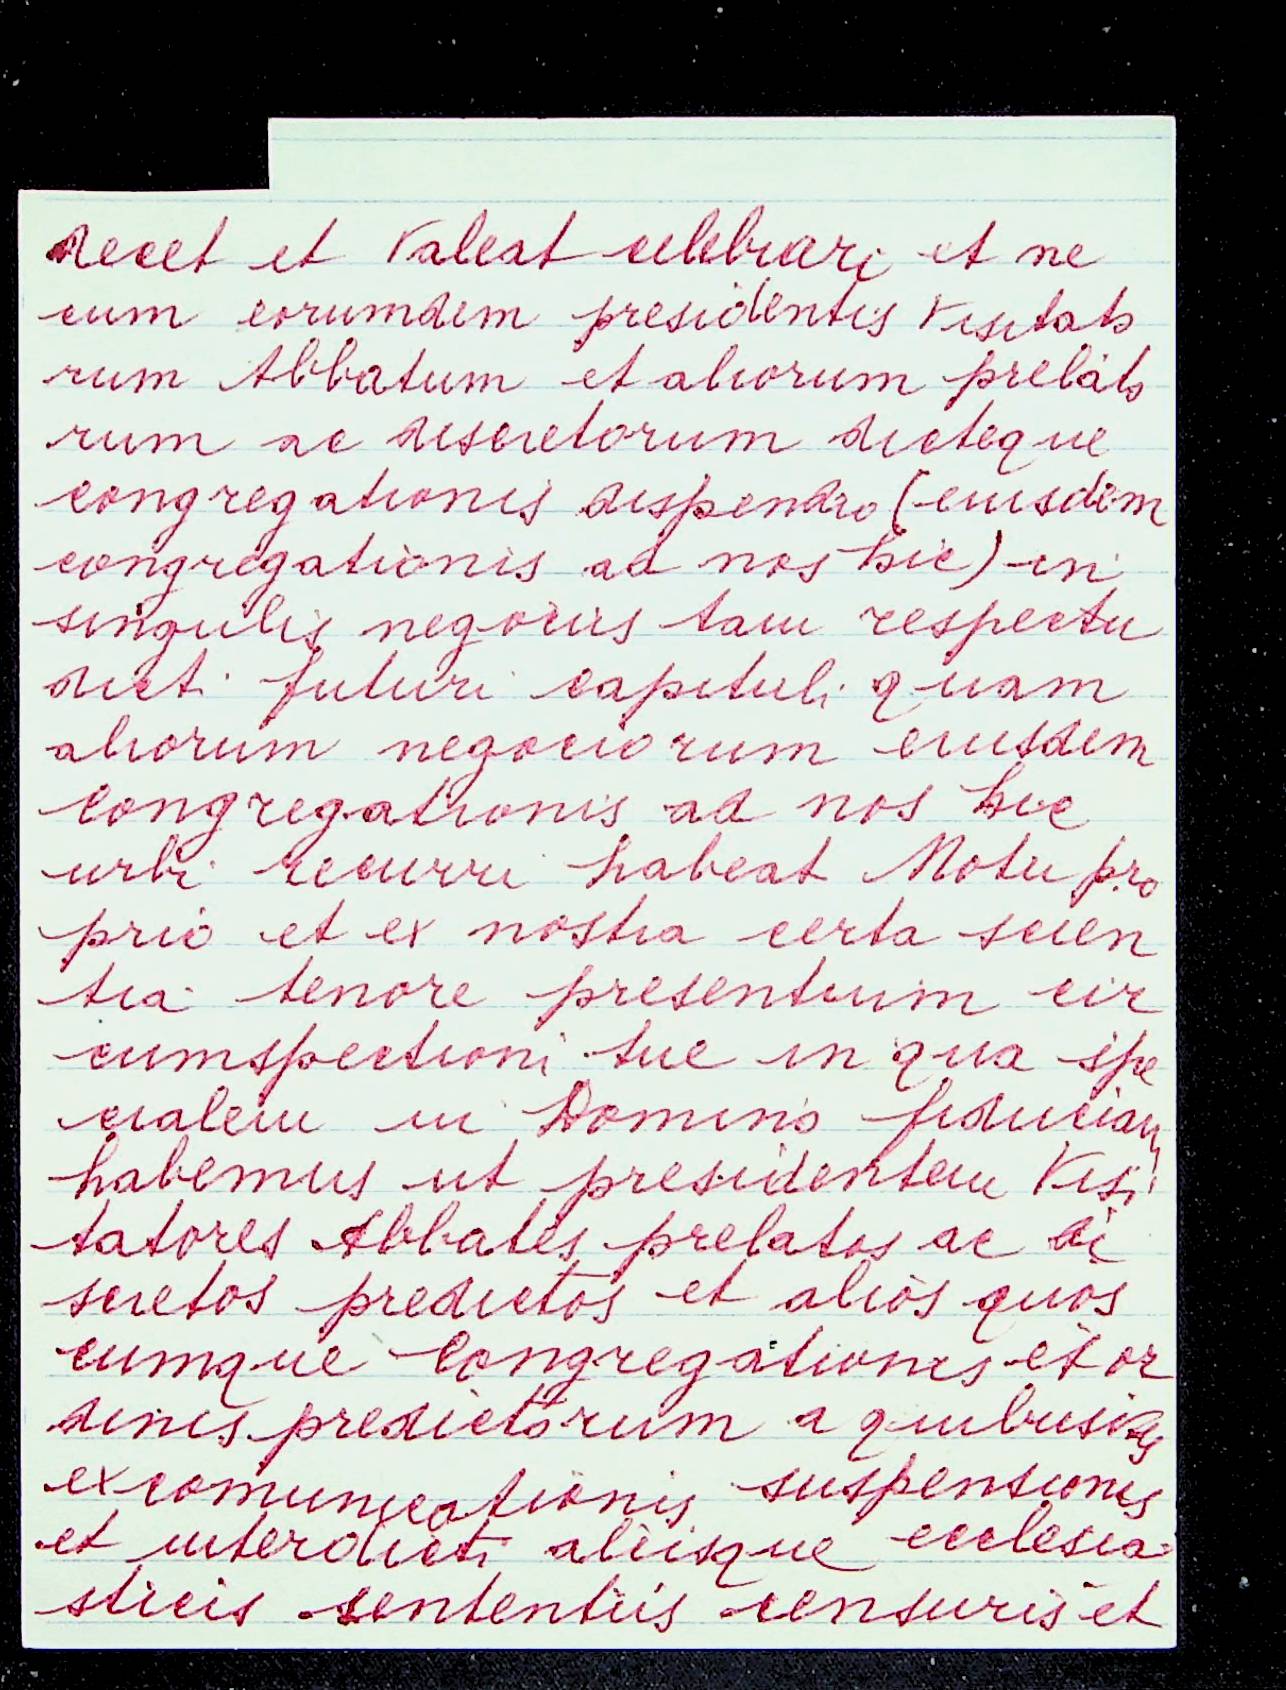 decet et valeat celebrari et ne
cum eorumdem presidentis Visitato
rum Abbatum et aliorum prelato
rum ac discretorum dicteque
congregationis dispendio (eiusdem
congregationis ad nos hic) in
singulis negociis tam respectu
dicti futuri capituli quam
aliorum negociorum eiusdem
Congregationis ad nos hic
urbi recurri habeat Motu pro
prio et ex nostra certa scien
tia tenore presentium cir
cumspectioni tue in qua spe
cialem in Domino fiduciam
habemus ut presidentem Visi
tatores Abbates prelatos ac di
scretos predictos et alios quos
cumque Congregationis et or
dinis predictorum a quibusvis
excomunicationis suspensionis
et interdicti aliisque ecclesia
sticis sententiis censuris et